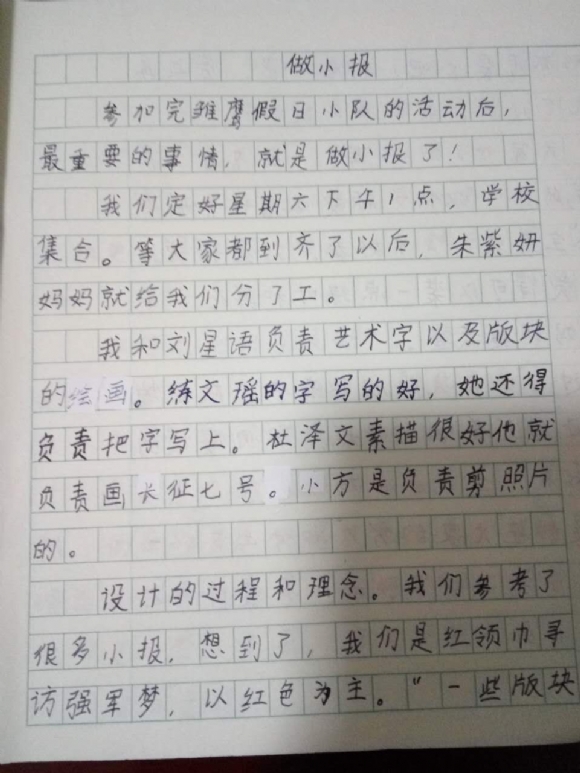 做小报
参加完雏鹰假日小队的活动后，
最重要的事情，就是做小报了！
我们定好星期六下午1点，学校
集合。等大家都到齐了以后，朱紫妍
妈妈就给我们分了工。
我和刘星语负责艺术字以及版块
的绘画。练文瑶的字写的好，她还得
负责把字写上。杜泽文素描很好他就
负责画长征七号。小方是负责剪照片
的。
设计的过程和理念。我们参考了
很多小报，想到了，我们是红领巾寻
访强军梦，以红色为主。“一些版块